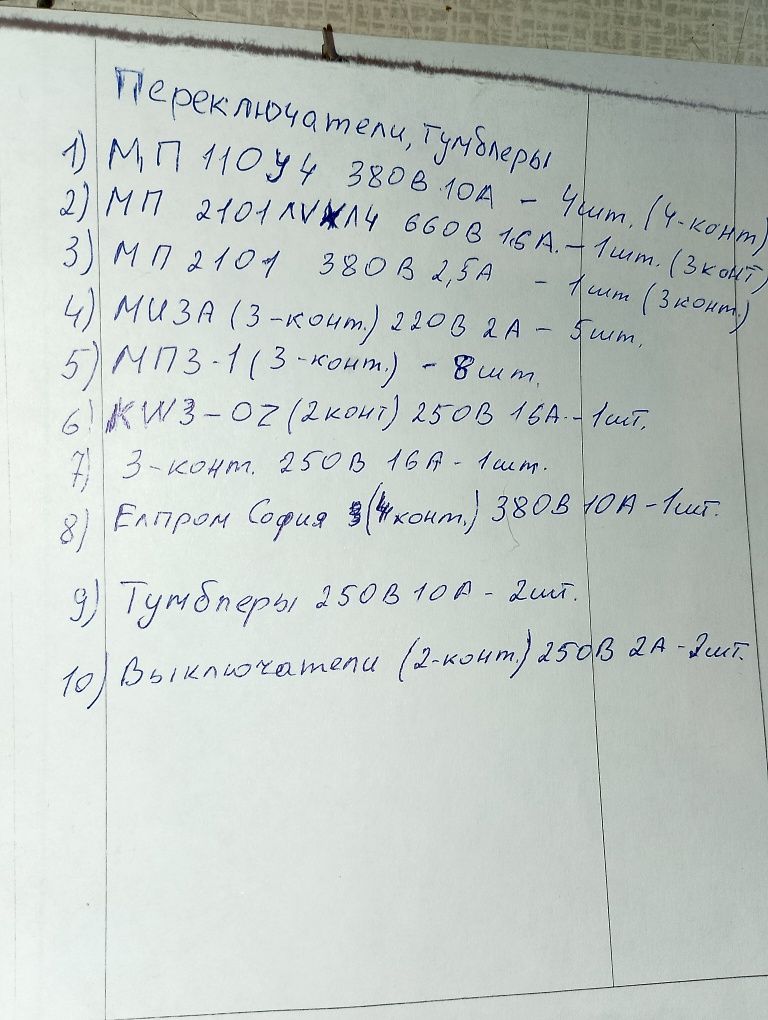 Переключатели, Тумблеры
1) МП 110У4 380В 10А - 4шт. (4-конт)
2) МП 2101 660В 1,6А. - 1шт. (3конт)
3) МП 2101 380В 2,5А - 1шт (3конт.)
4) МИЗА (3-конт.) 220В 2А - 5шт.
5) МПЗ-1 (3-конт.) - 8шт.
6) KW3-OZ (2конт) 250В 16А. - 1шт.
7) 3-конт. 250В 16А - 1шт.
8) Елпром София (4конт.) 380В 10А - 1шт.
9) Тумблеры 250В 10А - 2шт.
10) Выключатели (2-конт.) 250В 2А - 2шт.